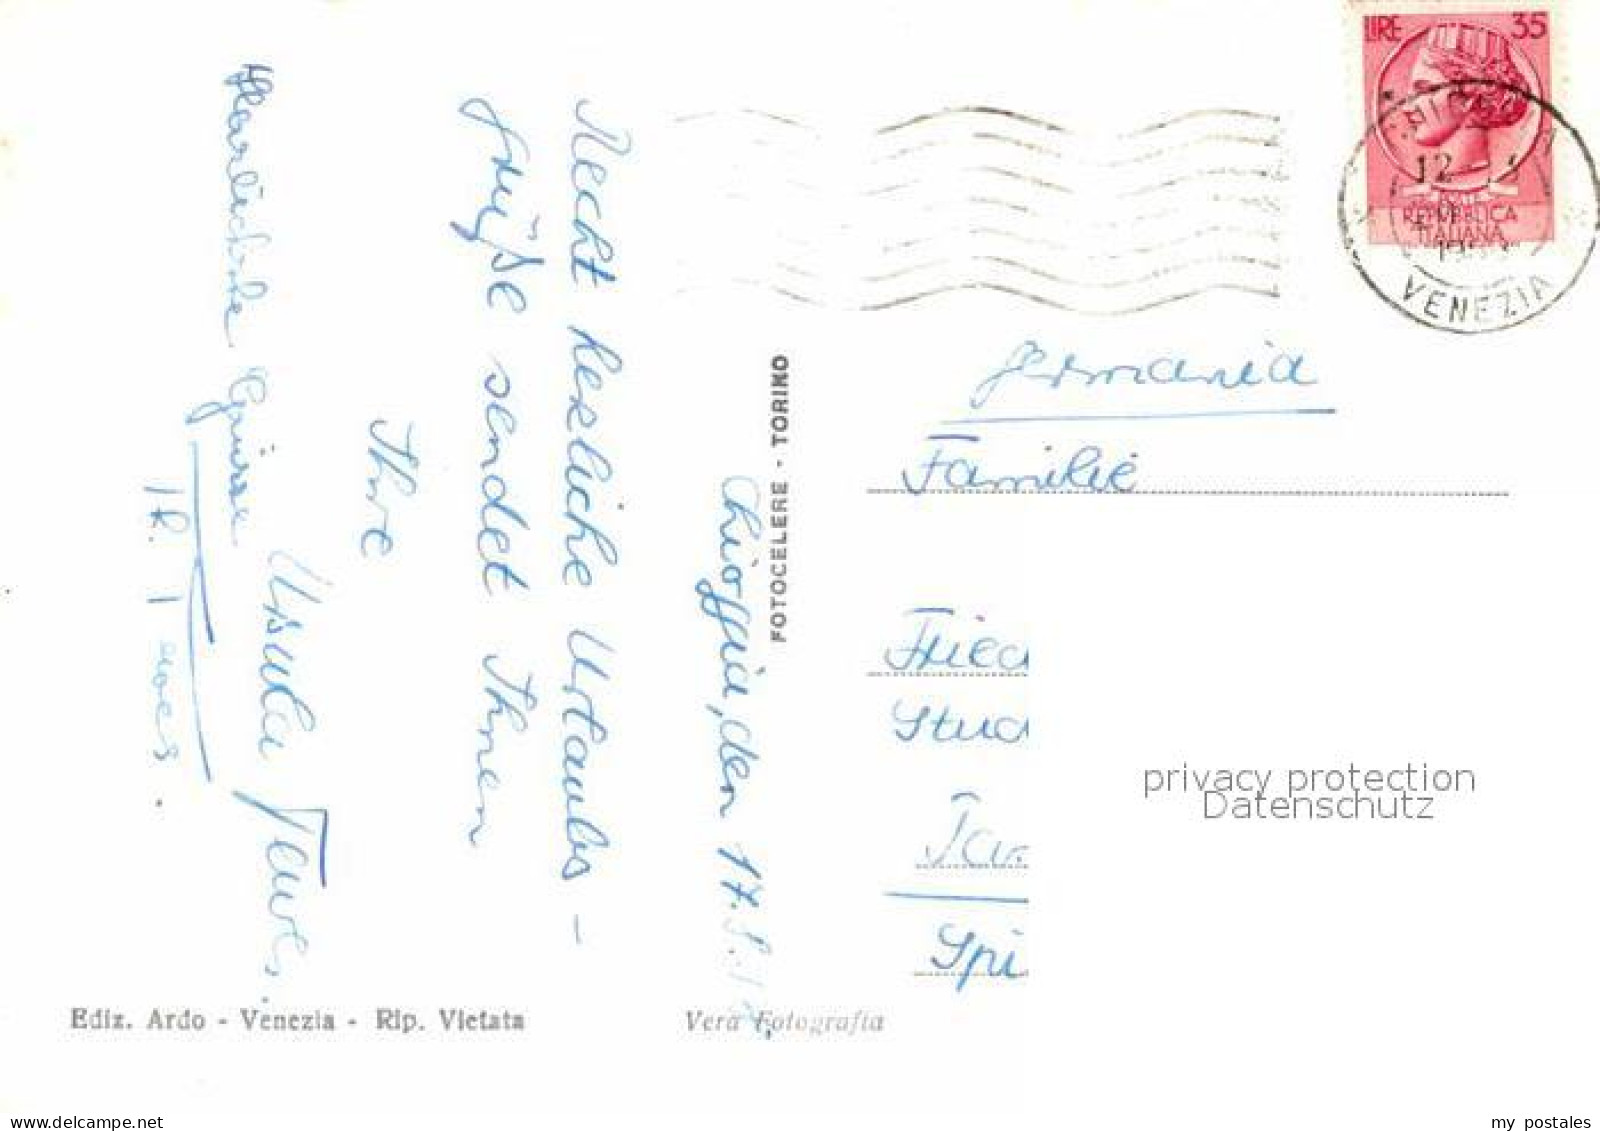 LIRE 35
REPUBBLICA
ITALIANA
12
VENEZIA
Chioggia, den 17.
Recht herzliche Urlaubs-
grüße sendet Ihnen
Ihre
Ursula
Herzliche Grüsse
Germania
Familie
Fried
Stud
Spi
FOTOCELERE - TORINO
privacy protection
Datenschutz
Ediz. Ardo - Venezia - Rip. Vietata
Vera Fotografia
delcampe.net
my_postales